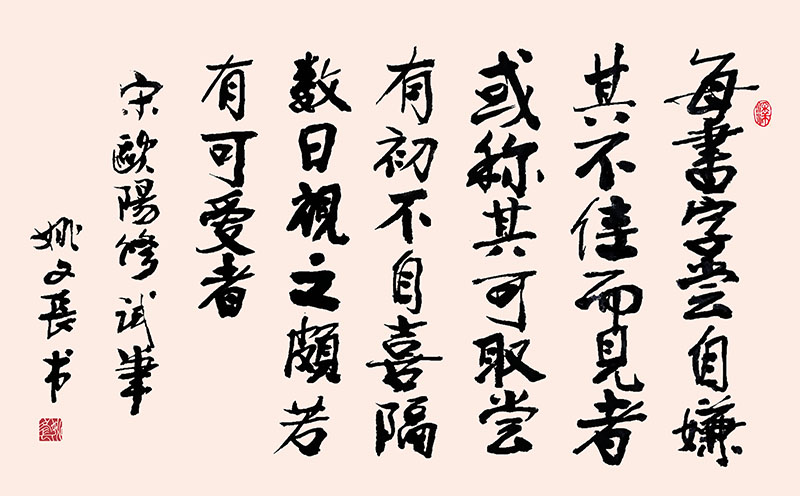 每書字尝自嫌
其不佳而見者
或称其可取尝
有初不自喜隔
数日視之頗若
有可爱者
宋歐陽修試筆
姚文長书